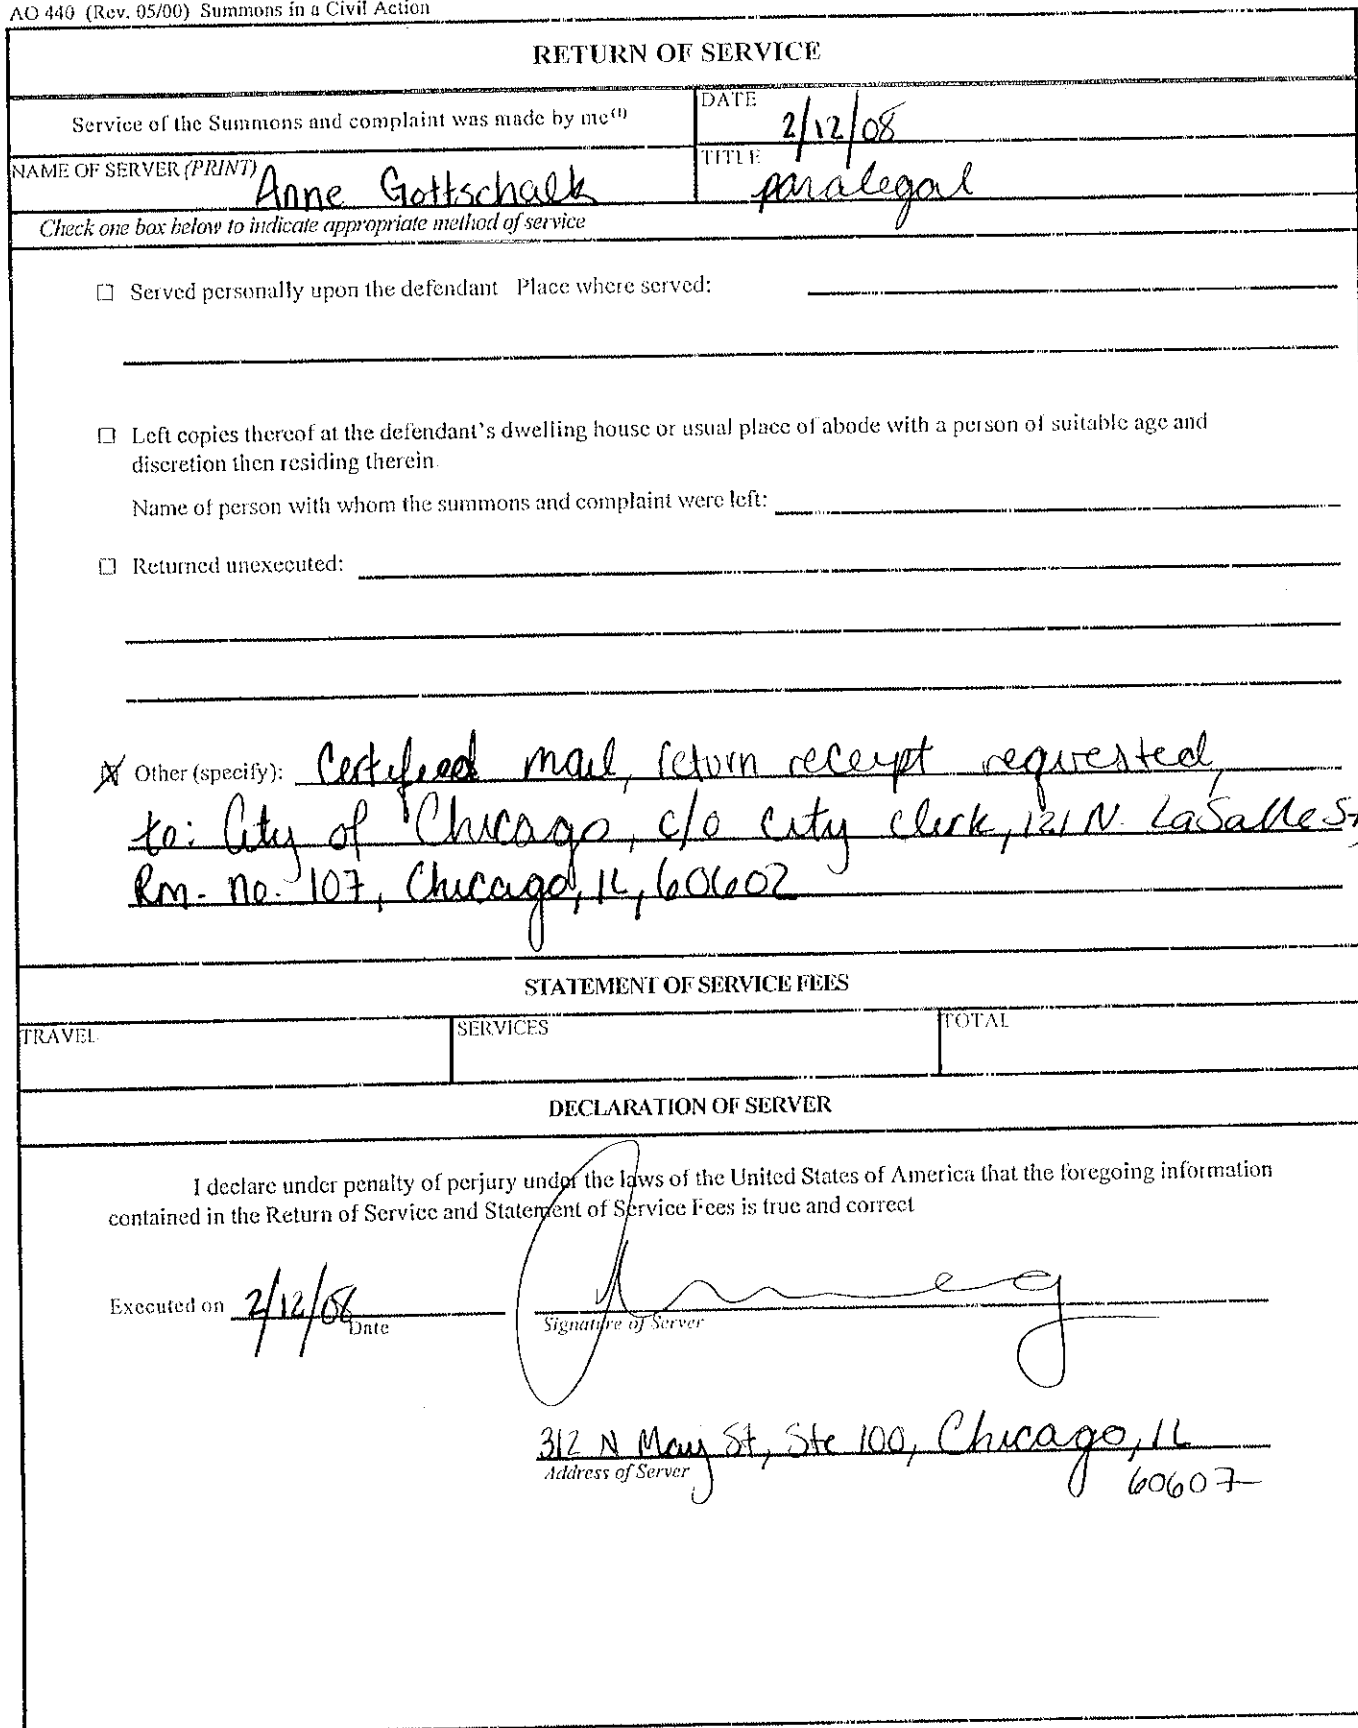 AO 440 (Rev. 05/00) Summons in a Civil Action
RETURN OF SERVICE
Service of the Summons and complaint was made by me(1)
DATE
2/12/08
NAME OF SERVER (PRINT)
Anne Gottschalk
TITLE
paralegal
Check one box below to indicate appropriate method of service
☐ Served personally upon the defendant Place where served:
☐ Left copies thereof at the defendant's dwelling house or usual place of abode with a person of suitable age and
discretion then residing therein.
Name of person with whom the summons and complaint were left:
☐ Returned unexecuted:
☒ Other (specify): Certified mail, return receipt requested,
to: City of Chicago, c/o City Clerk, 121 N. LaSalle St,
Rm. no. 107, Chicago, IL, 60602
STATEMENT OF SERVICE FEES
TRAVEL
SERVICES
TOTAL
DECLARATION OF SERVER
I declare under penalty of perjury under the laws of the United States of America that the foregoing information
contained in the Return of Service and Statement of Service Fees is true and correct
Executed on 2/12/08
Date
Signature of Server
312 N May St, Ste 100, Chicago, IL
60607
Address of Server